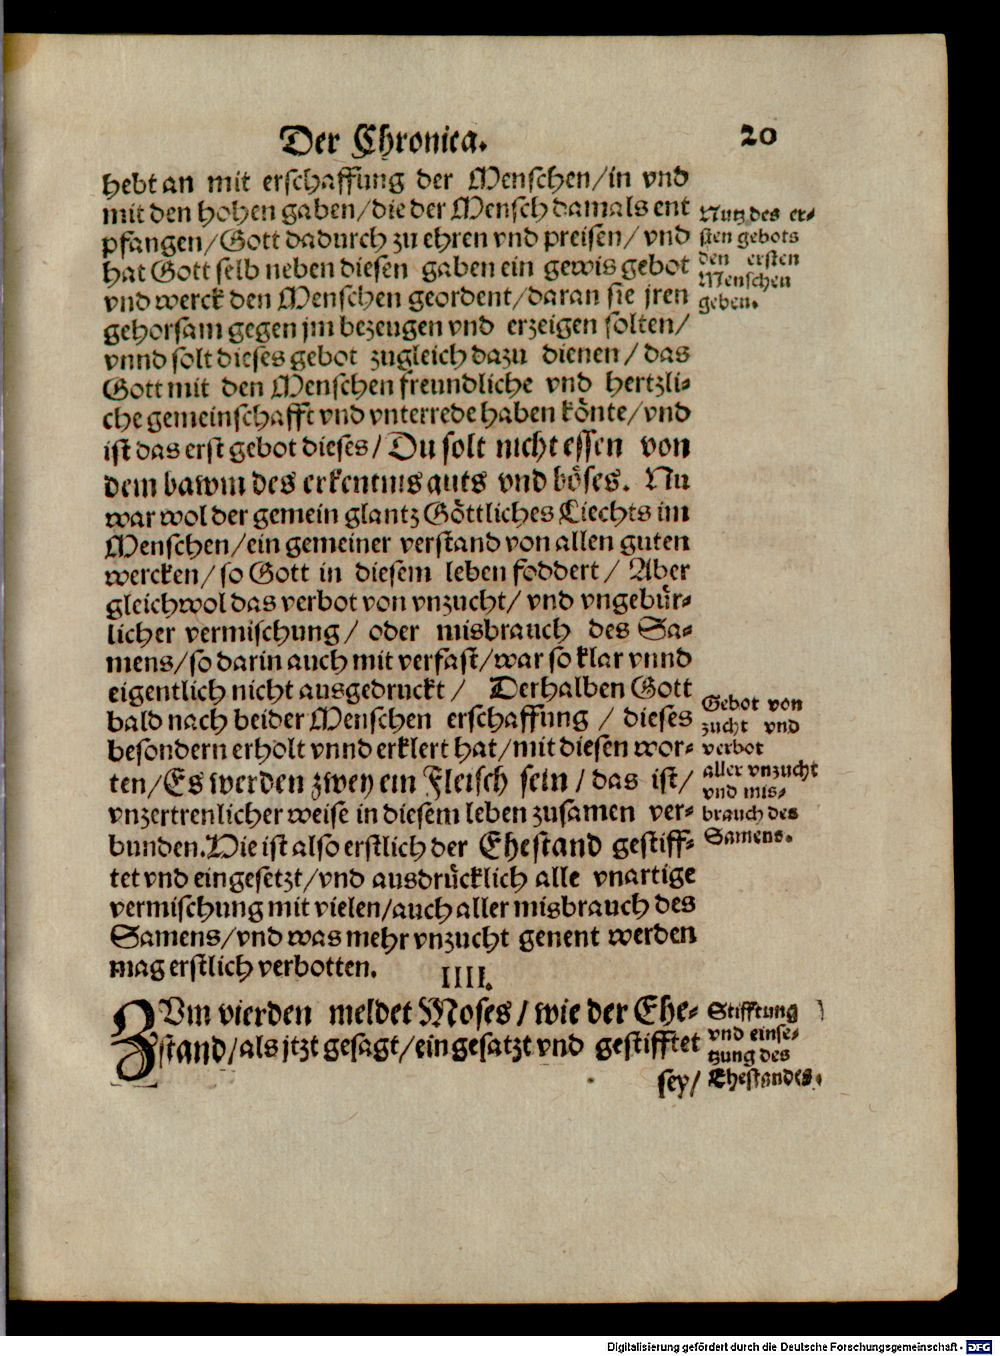 Der Chronica. 20
hebt an mit erschaffung der Menschen/in vnd
mit den hohen gaben/die der Mensch damals ent
pfangen/Gott dadurch zu ehren vnd preisen/vnd
hat Gott selb neben diesen gaben ein gewis gebot
vnd werck den Menschen geordent/daran sie jren
gehorsam gegen jm bezeugen vnd erzeigen solten/
vnnd solt dieses gebot zugleich dazu dienen/das
Gott mit den Menschen freundliche vnd hertzli-
che gemeinschafft vnd vnterrede haben könte/vnd
ist das erst gebot dieses/Du solt nicht essen von
dem bawm des erkentnis guts vnd böses. Nu
war wol der gemein glantz Göttliches Liechts im
Menschen/ein gemeiner verstand von allen guten
wercken/so Gott in diesem leben foddert/Aber
gleichwol das verbot von vnzucht/vnd vngebür-
licher vermischung/oder misbrauch des Sa-
mens/so darin auch mit verfast/war so klar vnnd
eigentlich nicht ausgedruckt/Derhalben Gott
bald nach beider Menschen erschaffung/dieses
besondern erholt vnnd erklert hat/mit diesen wor-
ten/Es werden zwey ein Fleisch sein/das ist/
vnzertrenlicher weise in diesem leben zusamen ver-
bunden.Hie ist also erstlich der Ehestand gestiff-
tet vnd eingesetzt/vnd ausdrücklich alle vnartige
vermischung mit vielen/auch aller misbrauch des
Samens/vnd was mehr vnzucht genent werden
mag erstlich verbotten.
IIII.
ZVm vierden meldet Moses/wie der Ehe-
stand/als jtzt gesagt/eingesatzt vnd gestifftet
sey/
Nutz des er-
sten gebots
den ersten
Menschen
geben.
Gebot von
zucht vnd
verbot
aller vnzucht
vnd mis-
brauch des
Samens.
Stifftung
vnd einse-
tzung des
Ehestandes.
Digitalisierung gefördert durch die Deutsche Forschungsgemeinschaft - DFG